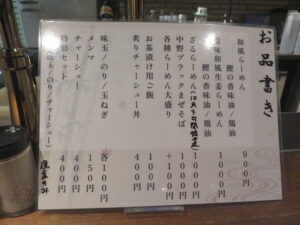 お品書き
和風らーめん 900円
鰹の香味油/鶏油
和風生姜らーめん 1000円
鰹の香味油/鶏油
ざるらーめん
中野ブラックまぜそば 1000円
各種らーめん大盛り +100円
お茶漬け用ご飯 100円
炙りチャーシュー丼 400円
味玉/のり/玉ねぎ 各100円
メンマ 150円
チャーシュー 400円
特別セット 400円
味玉/のり/チャーシュー)